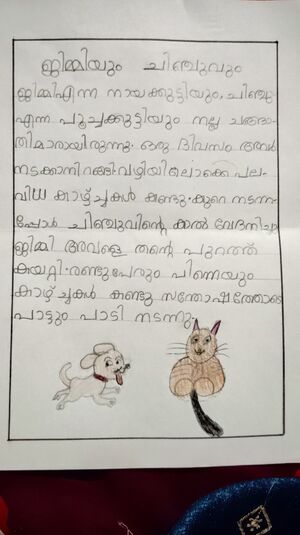 ജിമ്മിയും ചിഞ്ചുവും
ജിമ്മിഎന്ന നായക്കുട്ടിയും, ചിഞ്ചു
എന്ന പൂച്ചക്കുട്ടിയും നല്ല ചങ്ങാ-
തിമാരായിരുന്നു. ഒരു ദിവസം അവർ
നടക്കാനിറങ്ങി.വഴിയിലൊക്കെ പല-
വിധ കാഴ്ച്ചകൾ കണ്ടു. കുറെ നടന്ന-
പ്പോൾ ചിഞ്ചുവിൻ്റെ കാൽ വേദനിച്ചു
ജിമ്മി അവളെ തൻ്റെ പുറത്ത്
കയറ്റി. രണ്ടുപേരും പിന്നെയും
കാഴ്ച്ചകൾ കണ്ടു സന്തോഷത്തോടെ
പാട്ടും പാടി നടന്നു.